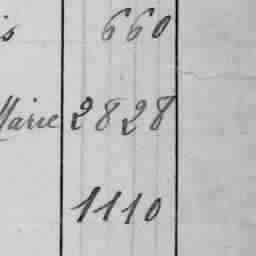 660
Marie 2828
1110